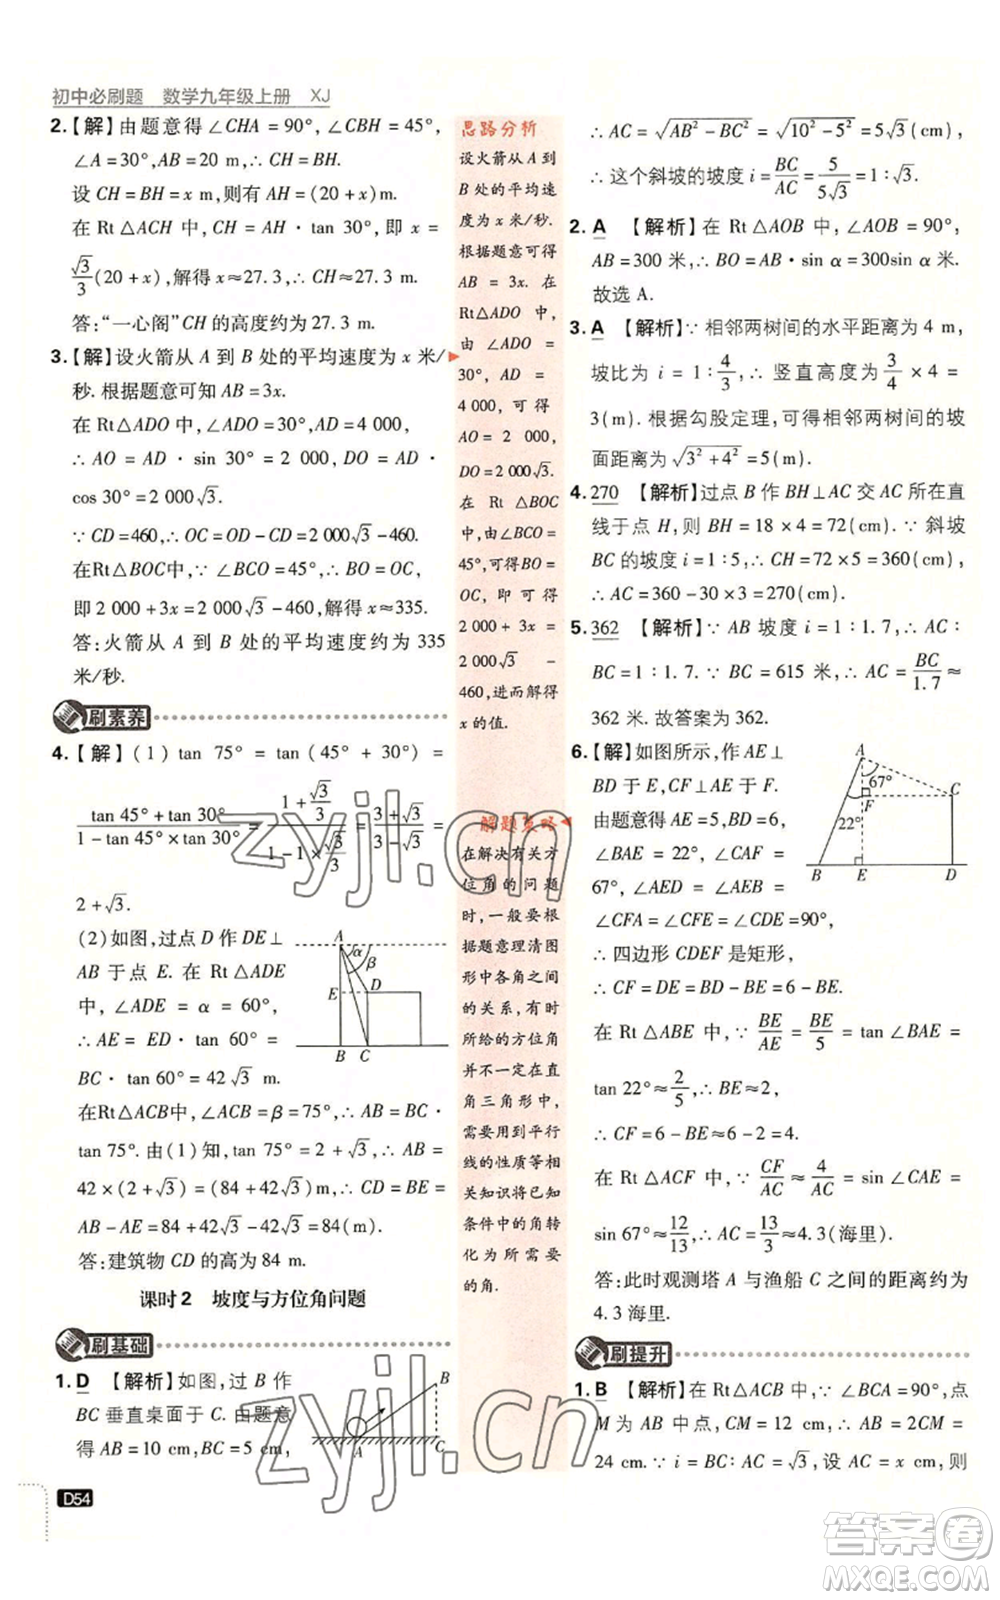 初中必刷题 数学九年级上册 XJ
2.【解】由题意得∠CHA=90°,∠CBH=45°,
∠A=30°,AB=20 m,∴CH=BH.
设CH=BH=x m,则有AH=(20+x)m.
在Rt△ACH中,CH=AH·tan 30°,即x=
√3/3(20+x),解得x≈27.3,∴CH=27.3 m.
答:“一心阁”CH的高度约为27.3 m.
3.【解】设火箭从A到B处的平均速度为x米/
秒.根据题意可知AB=3x.
在Rt△ADO中,∠ADO=30°,AD=4 000,
∴AO=AD·sin 30°=2 000,DO=AD·
cos 30°=2 000√3.
∵CD=460,∴OC=OD-CD=2 000√3-460.
在Rt△BOC中,∵∠BCO=45°,∴BO=OC,
即2 000+3x=2 000√3-460,解得x≈335.
答:火箭从A到B处的平均速度约为335
米/秒.
刷素养
4.【解】(1)tan 75°=tan(45°+30°)=
(tan 45°+tan 30°)/(1-tan 45°×tan 30°)=(1+√3/3)/(1-1×√3/3)=(3+√3)/(3-√3)=
2+√3.
(2)如图,过点D作DE⊥
AB于点E.在Rt△ADE
中,∠ADE=α=60°,
∴AE=ED·tan 60°=
BC·tan 60°=42√3 m.
A α β E D B C
在Rt△ACB中,∠ACB=β=75°,∴AB=BC·
tan 75°.由(1)知,tan 75°=2+√3,∴AB=
42×(2+√3)=(84+42√3)m,∴CD=BE=
AB-AE=84+42√3-42√3=84(m).
答:建筑物CD的高为84 m.
课时2 坡度与方位角问题
刷基础
1.D 【解析】如图,过B作
BC垂直桌面于C.由题意
得AB=10 cm,BC=5 cm,
B A C
D54
思路分析
设火箭从A到
B处的平均速
度为x米/秒.
根据题意可得
AB=3x.在
Rt△ADO中,
由∠ADO=
30°,AD=
4 000,可得
AO=2 000,
DO=2 000√3.
在Rt△BOC
中,由∠BCO=
45°,可得BO=
OC,即可得
2 000+3x=
2 000√3-
460,进而解得
x的值.
解题策略
在解决有关方
位角的问题
时,一般要根
据题意理清图
形中各角之间
的关系,有时
所给的方位角
并不一定在直
角三角形中,
需要用到平行
线的性质等相
关知识将已知
条件中的角转
化为所需要
的角.
∴AC=√(AB²-BC²)=√(10²-5²)=5√3(cm),
∴这个斜坡的坡度i=BC/AC=5/5√3=1∶√3.
2.A 【解析】在Rt△AOB中,∠AOB=90°,
AB=300米,∴BO=AB·sin α=300sin α米.
故选A.
3.A 【解析】∵相邻两树间的水平距离为4 m,
坡比为i=1∶4/3,∴竖直高度为3/4×4=
3(m).根据勾股定理,可得相邻两树间的坡
面距离为√(3²+4²)=5(m).
4.270 【解析】过点B作BH⊥AC交AC所在直
线于点H,则BH=18×4=72(cm).∵斜坡
BC的坡度i=1∶5,∴CH=72×5=360(cm),
∴AC=360-30×3=270(cm).
5.362 【解析】∵AB坡度i=1∶1.7,∴AC∶
BC=1∶1.7.∵BC=615米,∴AC=BC/1.7≈
362米.故答案为362.
6.【解】如图所示,作AE⊥
BD于E,CF⊥AE于F.
由题意得AE=5,BD=6,
∠BAE=22°,∠CAF=
67°,∠AEB=∠AED=
∠CFA=∠CFE=∠CDE=90°,
A 67° F C 22° B E D
∴四边形CDEF是矩形,
∴CF=DE=BD-BE=6-BE.
在Rt△ABE中,∵BE/AE=BE/5=tan∠BAE=
tan 22°≈2/5,∴BE≈2,
∴CF=6-BE≈4.
在Rt△ACF中,∵CF/AC≈4/AC=sin∠CAE=
sin 67°≈12/13,∴AC≈13/3≈4.3(海里).
答:此时观测塔A与渔船C之间的距离约为
4.3海里.
刷提升
1.B 【解析】在Rt△ABC中,∠BCA=90°,点
M为AB中点,CM=12 cm,∴AB=2CM=
24 cm.∵i=BC∶AC=√3,设AC=x cm,则
zyjl.cn
zyjl.cn
答案卷
MXQE.COM